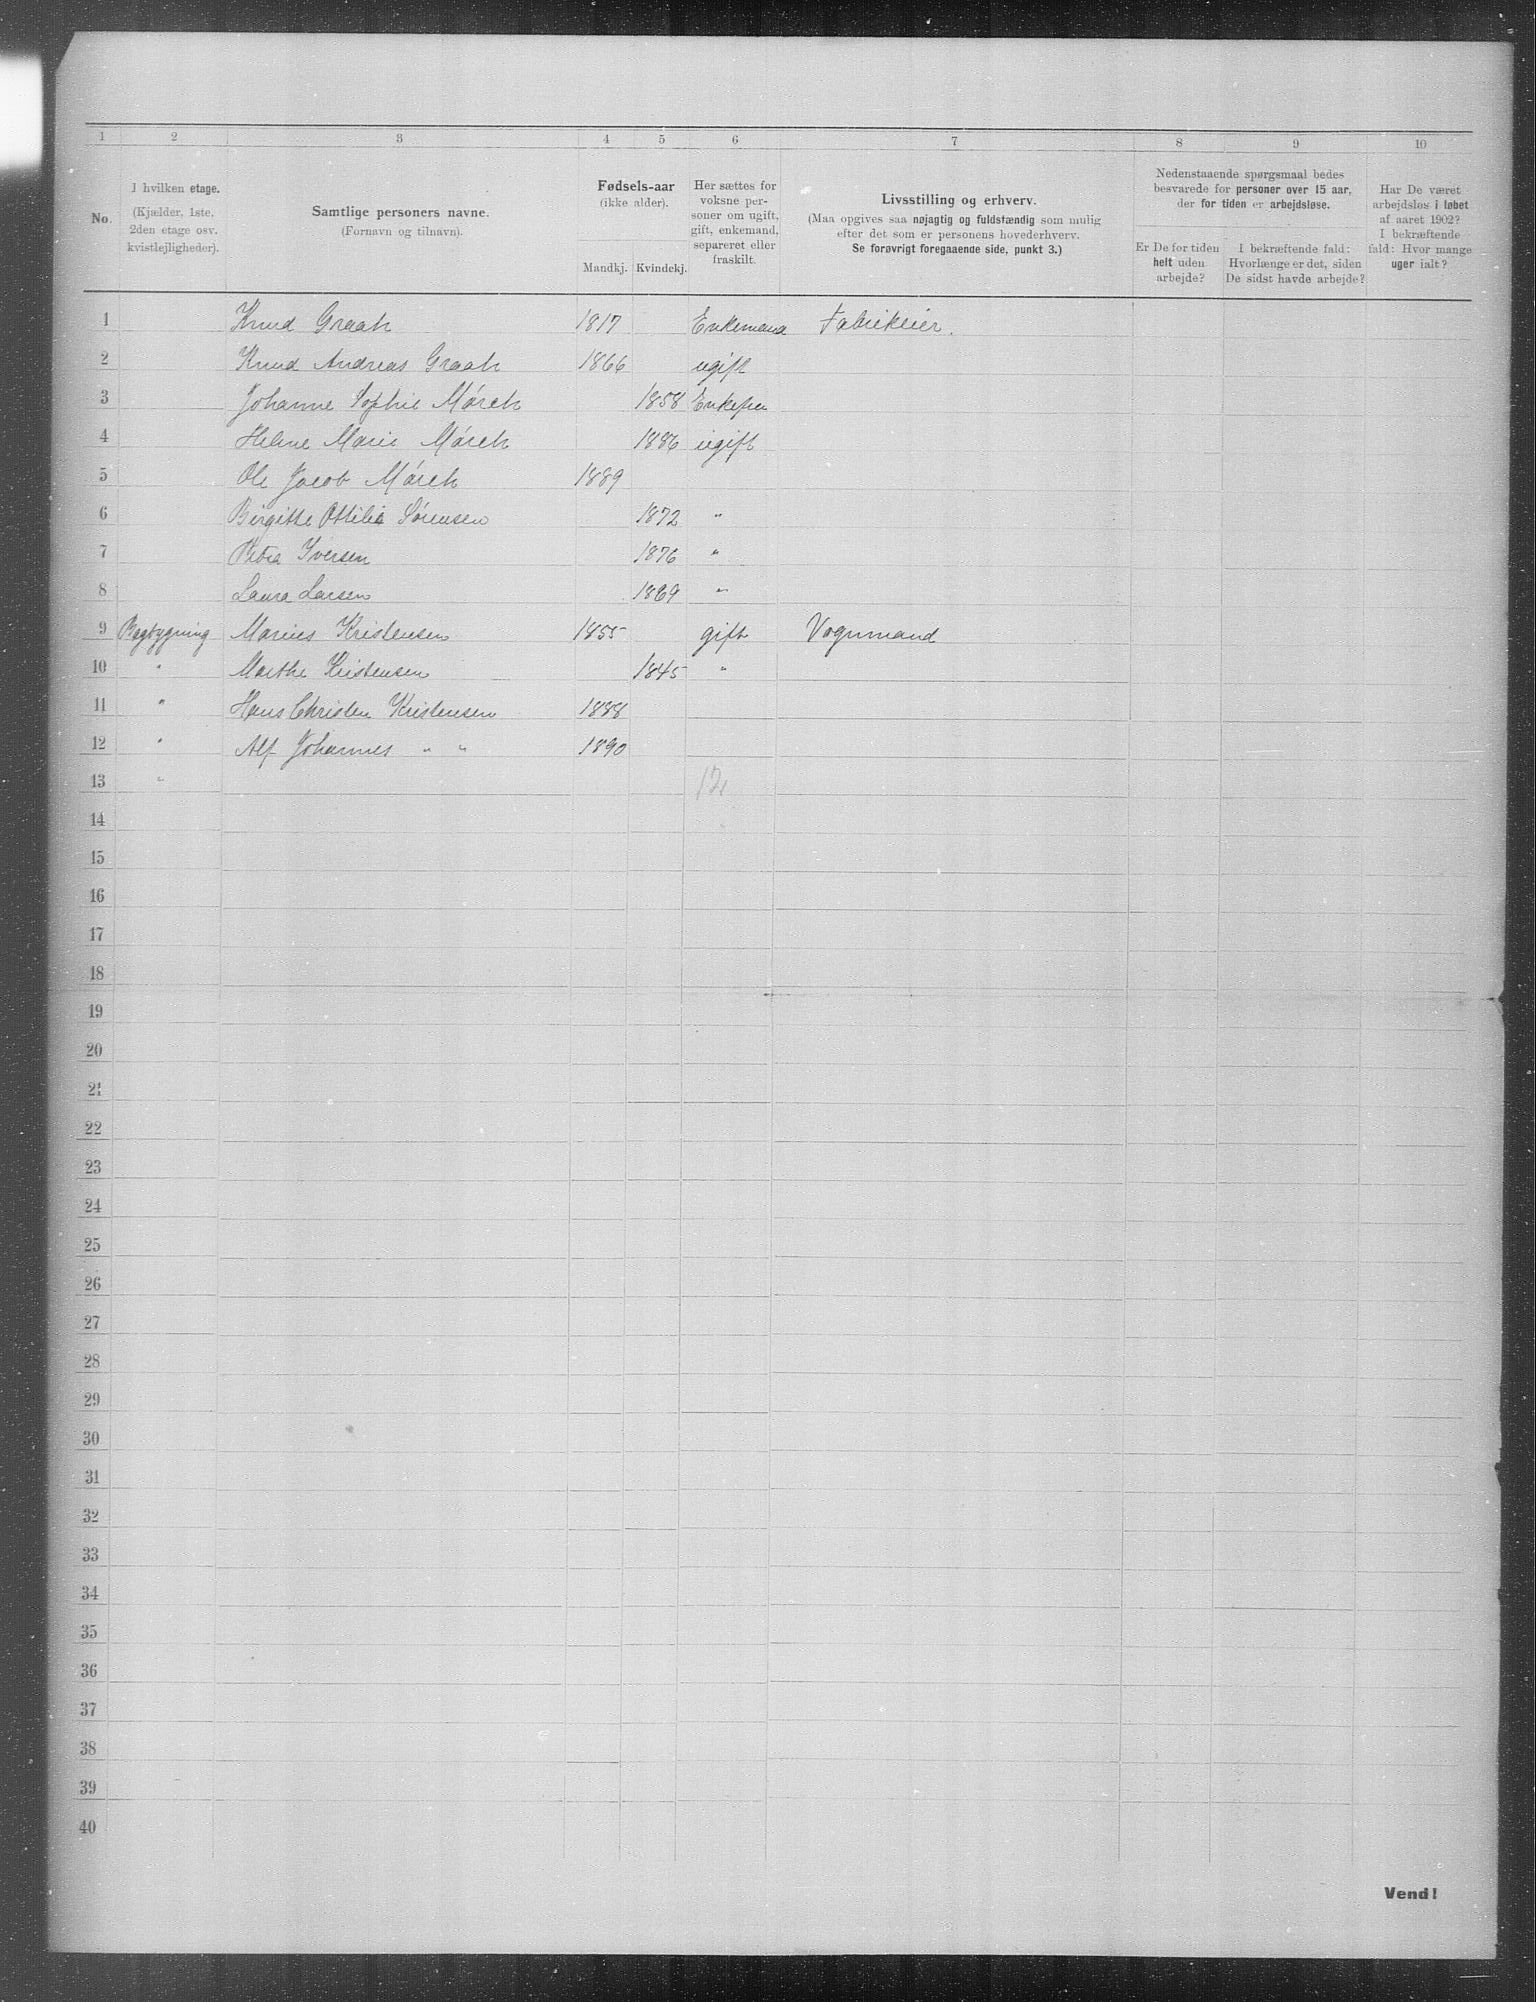 1 2 3 4 5 6 7 8 9 10
No.
I hvilken etage.
(Kjælder, 1ste,
2den etage osv.
kvistlejligheder).
Samtlige personers navne.
(Fornavn og tilnavn).
Fødsels-aar
(ikke alder).
Mandkj. Kvindekj.
Her sættes for
voksne per-
soner om ugift,
gift, enkemand,
separeret eller
fraskilt.
Livsstilling og erhverv.
(Maa opgives saa nøjagtig og fuldstændig som mulig
efter det som er personens hovederhverv.
Se forøvrigt foregaaende side, punkt 3.)
Nedenstaaende spørgsmaal bedes
besvarede for personer over 15 aar,
der for tiden er arbejdsløse.
Er De for tiden
helt uden
arbejde?
I bekræftende fald:
Hvorlænge er det, siden
De sidst havde arbejde?
Har De været
arbejdsløs i løbet
af aaret 1902?
I bekræftende
fald: Hvor mange
uger ialt?
1 Knud Graah 1817 Enkemand Fabrikeier.
2 Knud Andreas Graah 1866 ugift
3 Johanne Sophie Mörch 1858 Enkefru
4 Helene Marie Mörch 1886 ugift
5 Ole Jacob Mörch 1889
6 Birgitte Ottilia Sörensen 1872 "
7 Petra Iversen 1876 "
8 Laura Larsen 1869 "
9 Bagbygning Marius Kristensen 1855 gift Vognmand
10 " Marthe Kristensen 1845 "
11 " Hans Christen Kristensen 1888
12 " Alf Johannes " " 1890
13 " 12
14
15
16
17
18
19
20
21
22
23
24
25
26
27
28
29
30
31
32
33
34
35
36
37
38
39
40
Vend!